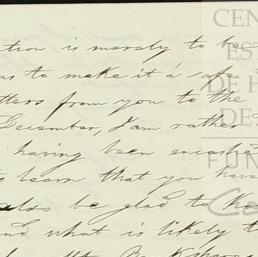 tion is merely to be
as to make it a safe
tters from you to the
December, I am rather
having been
to learn that you have
also be glad to
and what is likely t
CEN
ES
DE H
DE
FUN
Ca